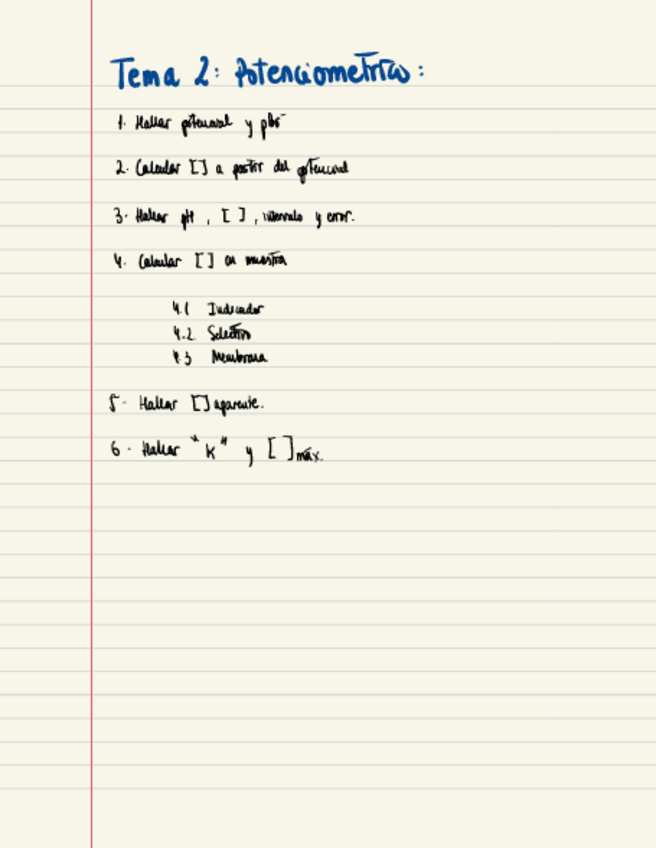 Tema 2: Potenciometrías:
1. Hallar potencial y
2. Calcular [] a partir del potencial
3. Hallar pH, [ ], intervalo y error.
4. Calcular [] en muestra
4.1 Indicador
4.2 Selectivo
4.3 Membrana
5. Hallar [] aparente.
6. Hallar "K" y [ ]máx.